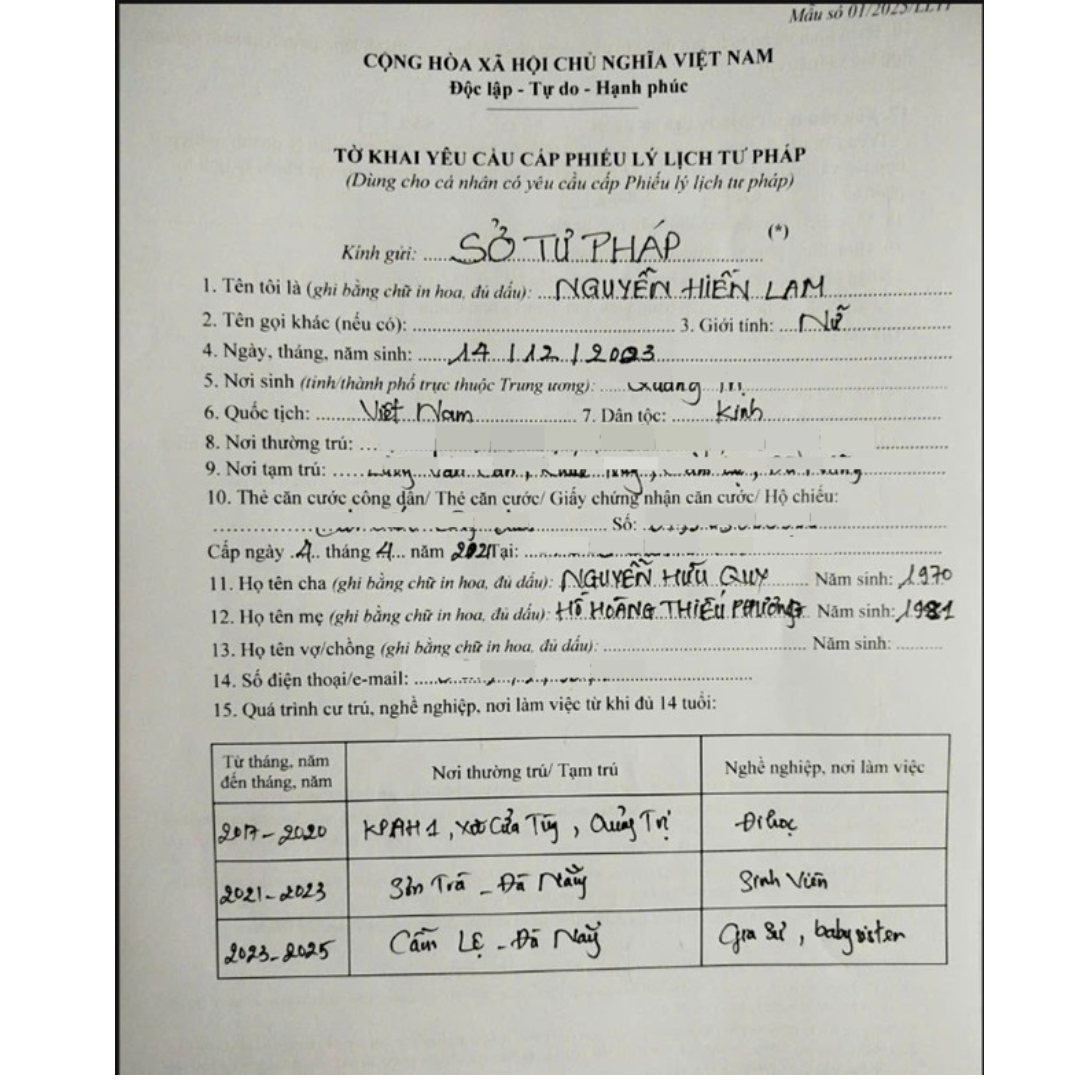 Mẫu số 01/2025/LLTP
CỘNG HÒA XÃ HỘI CHỦ NGHĨA VIỆT NAM
Độc lập - Tự do - Hạnh phúc
TỜ KHAI YÊU CẦU CẤP PHIẾU LÝ LỊCH TƯ PHÁP
(Dùng cho cá nhân có yêu cầu cấp Phiếu lý lịch tư pháp)
Kính gửi: SỞ TƯ PHÁP (*)
1. Tên tôi là (ghi bằng chữ in hoa, đủ dấu): NGUYỄN HIỀN LAM
2. Tên gọi khác (nếu có): 3. Giới tính: Nữ
4. Ngày, tháng, năm sinh: 14 / 12 / 2003
5. Nơi sinh (tỉnh/thành phố trực thuộc Trung ương):
6. Quốc tịch: Việt Nam 7. Dân tộc: Kinh
8. Nơi thường trú:
9. Nơi tạm trú:
10. Thẻ căn cước công dân/ Thẻ căn cước/ Giấy chứng nhận căn cước/ Hộ chiếu:
Số:
Cấp ngày 4 tháng 4 năm 2021 Tại:
11. Họ tên cha (ghi bằng chữ in hoa, đủ dấu): NGUYỄN HỮU QUY Năm sinh: 1970
12. Họ tên mẹ (ghi bằng chữ in hoa, đủ dấu): HỒ HOÀNG THIẾU PHƯƠNG Năm sinh: 1981
13. Họ tên vợ/chồng (ghi bằng chữ in hoa, đủ dấu): Năm sinh:
14. Số điện thoại/e-mail:
15. Quá trình cư trú, nghề nghiệp, nơi làm việc từ khi đủ 14 tuổi:
Từ tháng, năm
đến tháng, năm
Nơi thường trú/ Tạm trú
Nghề nghiệp, nơi làm việc
2017 - 2020 KPAH1, Xã Cửa Tùng, Quảng Trị Đi học
2021 - 2023 Sơn Trà - Đà Nẵng Sinh Viên
2023 - 2025 Cẩm Lệ - Đà Nẵng Gia Sư, babysister